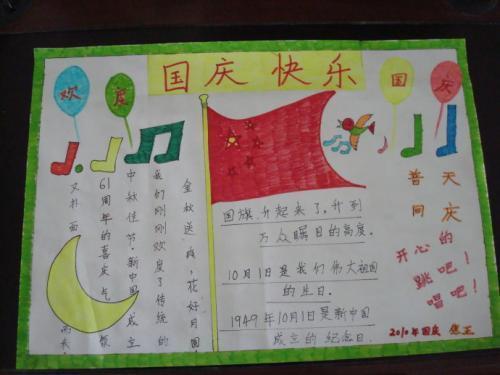 国庆 快乐
欢度
国庆
金秋送爽,花好月圆
我们刚刚欢度了传统的
中秋佳节·新中国成立
61周年的喜庆气氛
又扑面而来
国旗升起来了,升到
万众瞩目的高度。
10月1日是我们伟大祖国
的生日。
1949年10月1日是新中国
成立的纪念日.
普天
同庆
开心的
跳吧!
唱吧!
2010年国庆